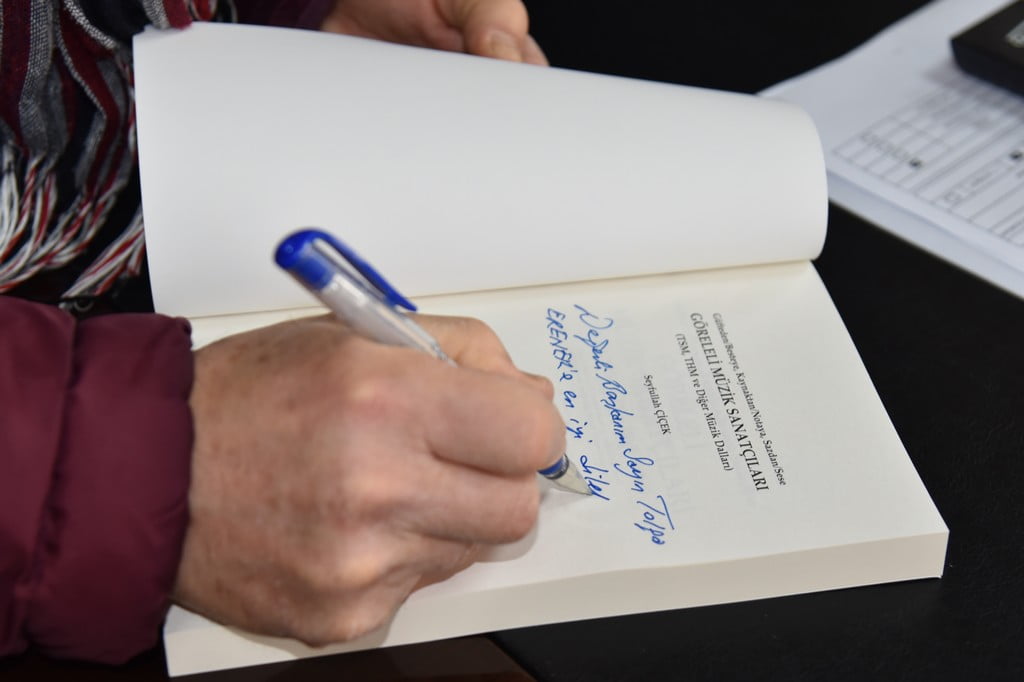 Güfteden/Besteye, Kaynaktan/Notaya, Sazdan/Sese
GÖRELELİ MÜZİK SANATÇILARI
(TSM, THM ve Diğer Müzik Dalları)
Seyfullah ÇİÇEK
Değerli Başkanım Sayın Tolga
ERENER'e en iyi dilek